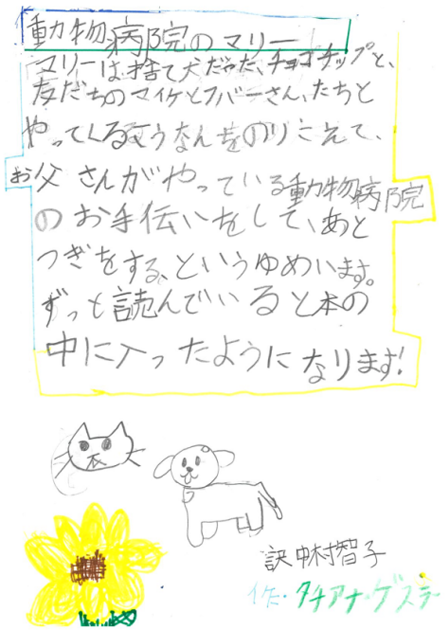 動物病院のマリー
マリーは捨て犬だった、チョコチップと、
友だちのマイケとフバーさん、たちと
やってくる交うなんをのりこえて、
お父さんがやっている動物病院
のお手伝いをして、あと
つぎをする、というゆめいます。
ずっと読んでいると本の
中に入ったようになります!
訳 中村智子
作・タチアナ・ゲスラー